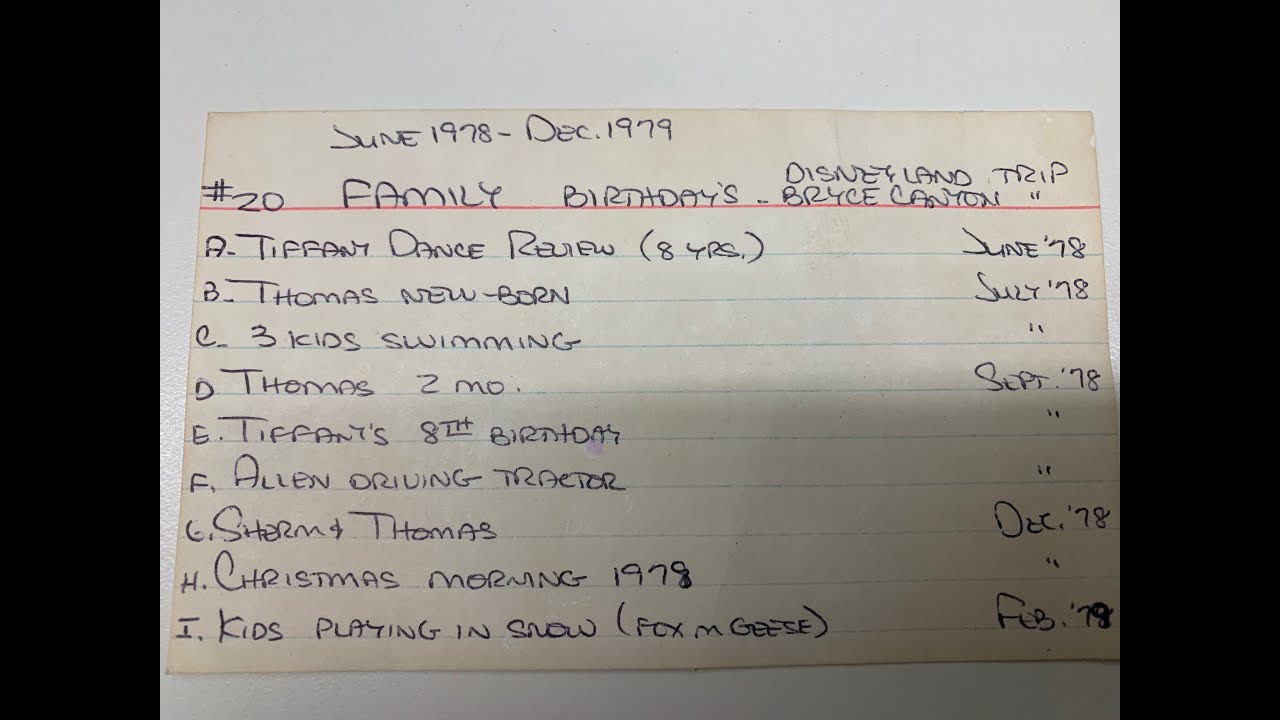 JUNE 1978 - DEC. 1979
DISNEYLAND TRIP
#20 FAMILY BIRTHDAY'S - BRYCE CANYON "
A- TIFFANY DANCE REVIEW (8 YRS.) JUNE '78
B- THOMAS NEW-BORN JULY '78
C- 3 KIDS SWIMMING "
D THOMAS 2 MO. SEPT. '78
E. TIFFANY'S 8TH BIRTHDAY "
F. ALLEN DRIVING TRACTOR "
G. SHERM & THOMAS DEC. '78
H. CHRISTMAS MORNING 1978 "
I. KIDS PLAYING IN SNOW (FOX N GEESE) FEB. '79